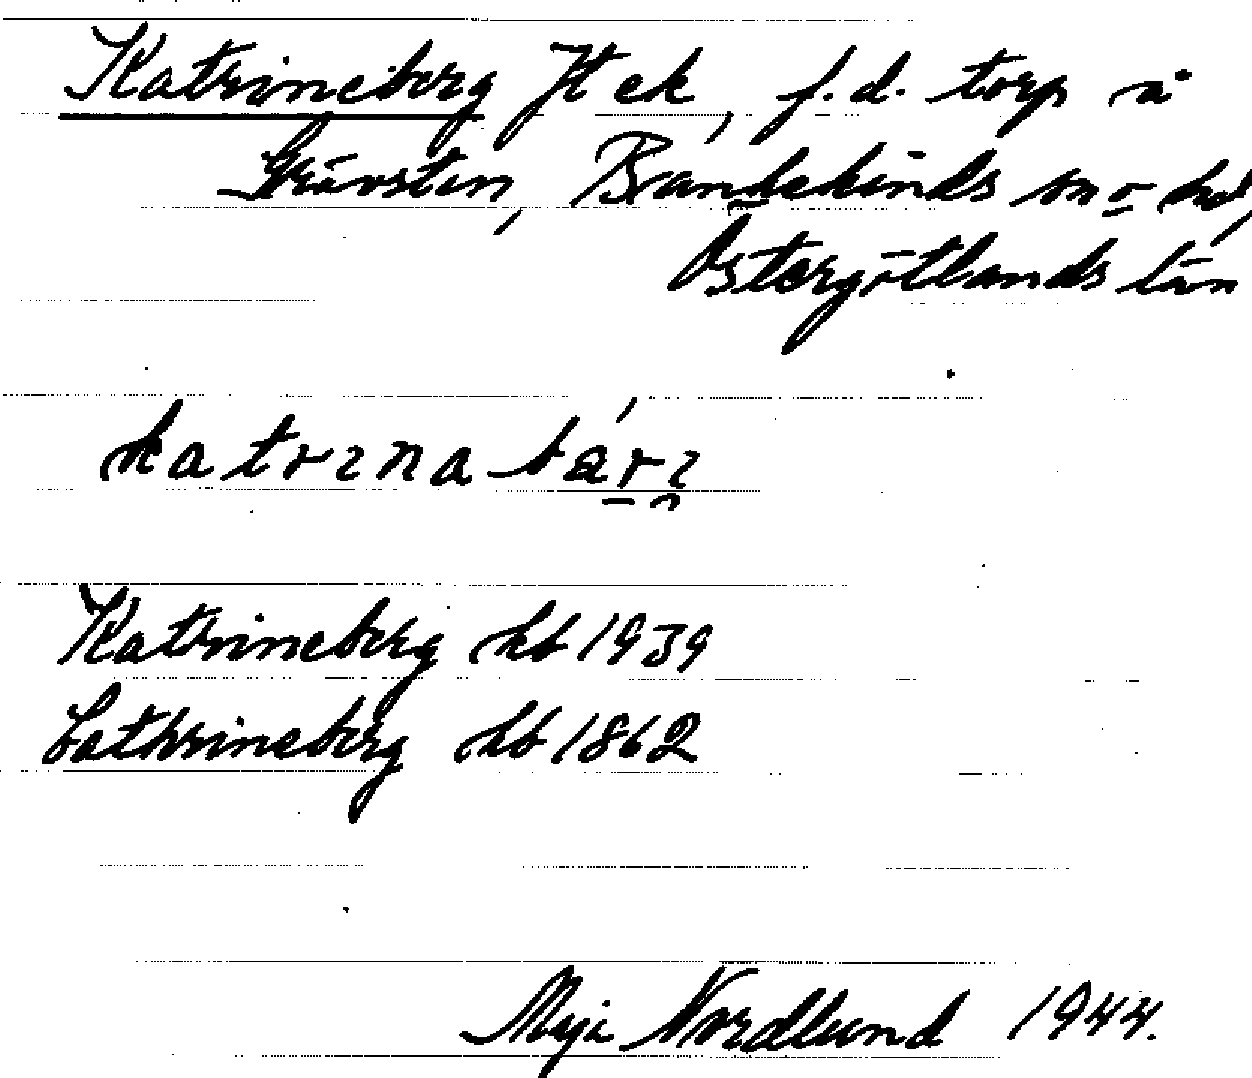 Katrineberg Jt ek, f.d. torp å
Grävsten, Bankekinds sn o hd,
Östergötlands län
katrinabärj
Katrineberg kb 1939
Cathrineberg kb 1862
Maja Nordlund 1944.